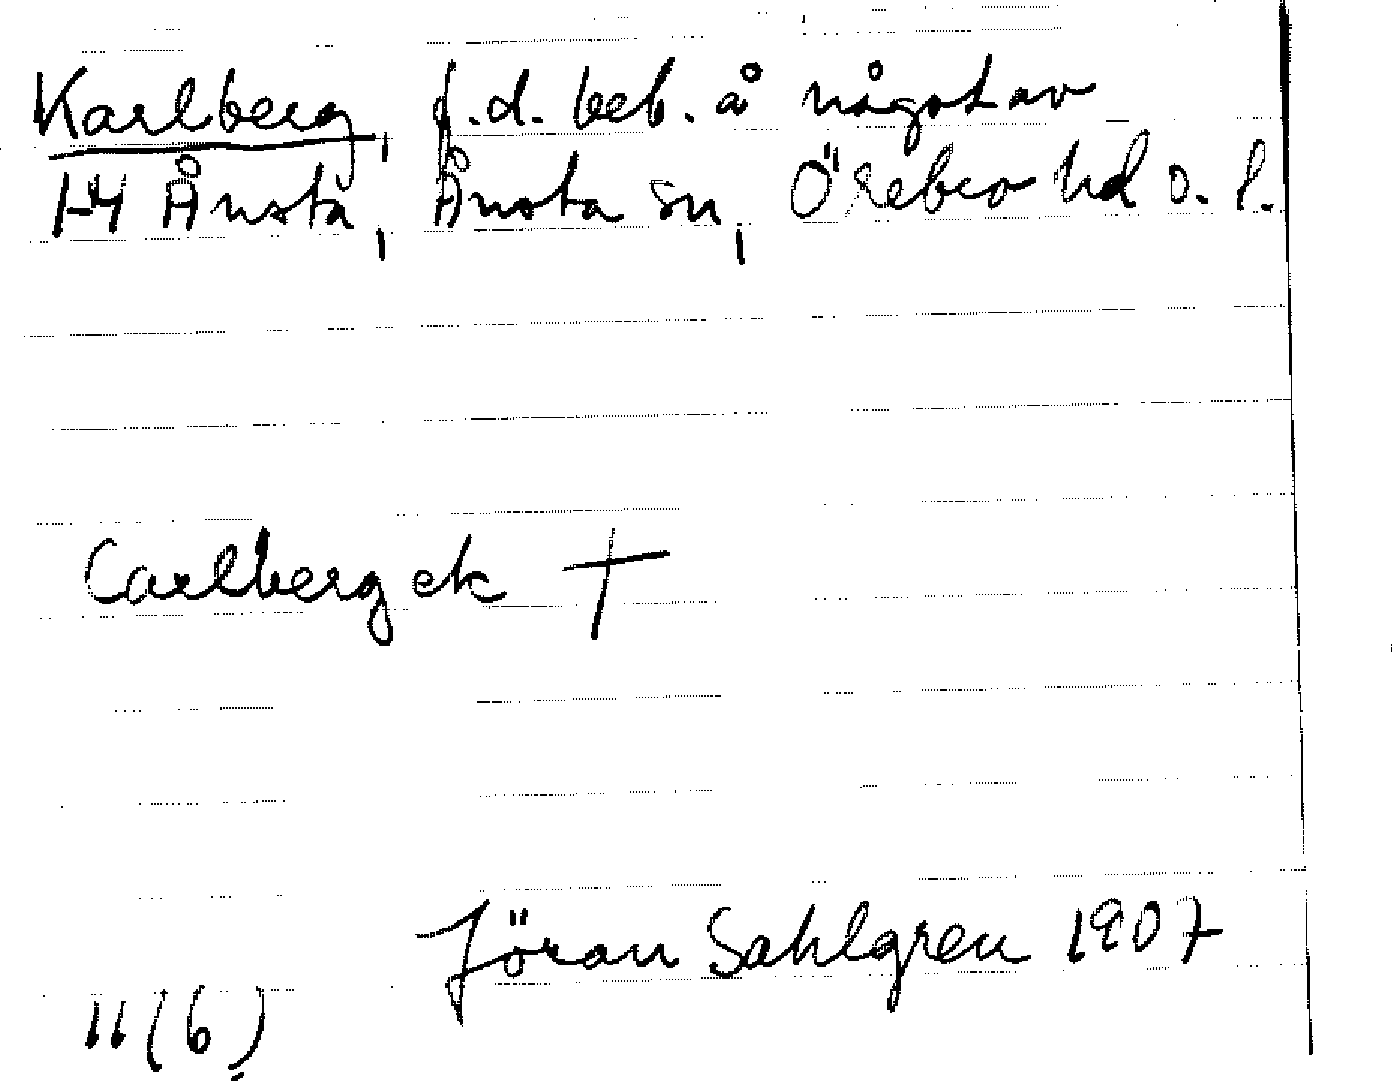 Karlberg, f.d. beb. å något av
1-4 Ånsta, Ånsta sn, Örebro hd Ö. l.
Carlberg ek †
Jöran Sahlgren 1907
11(6)